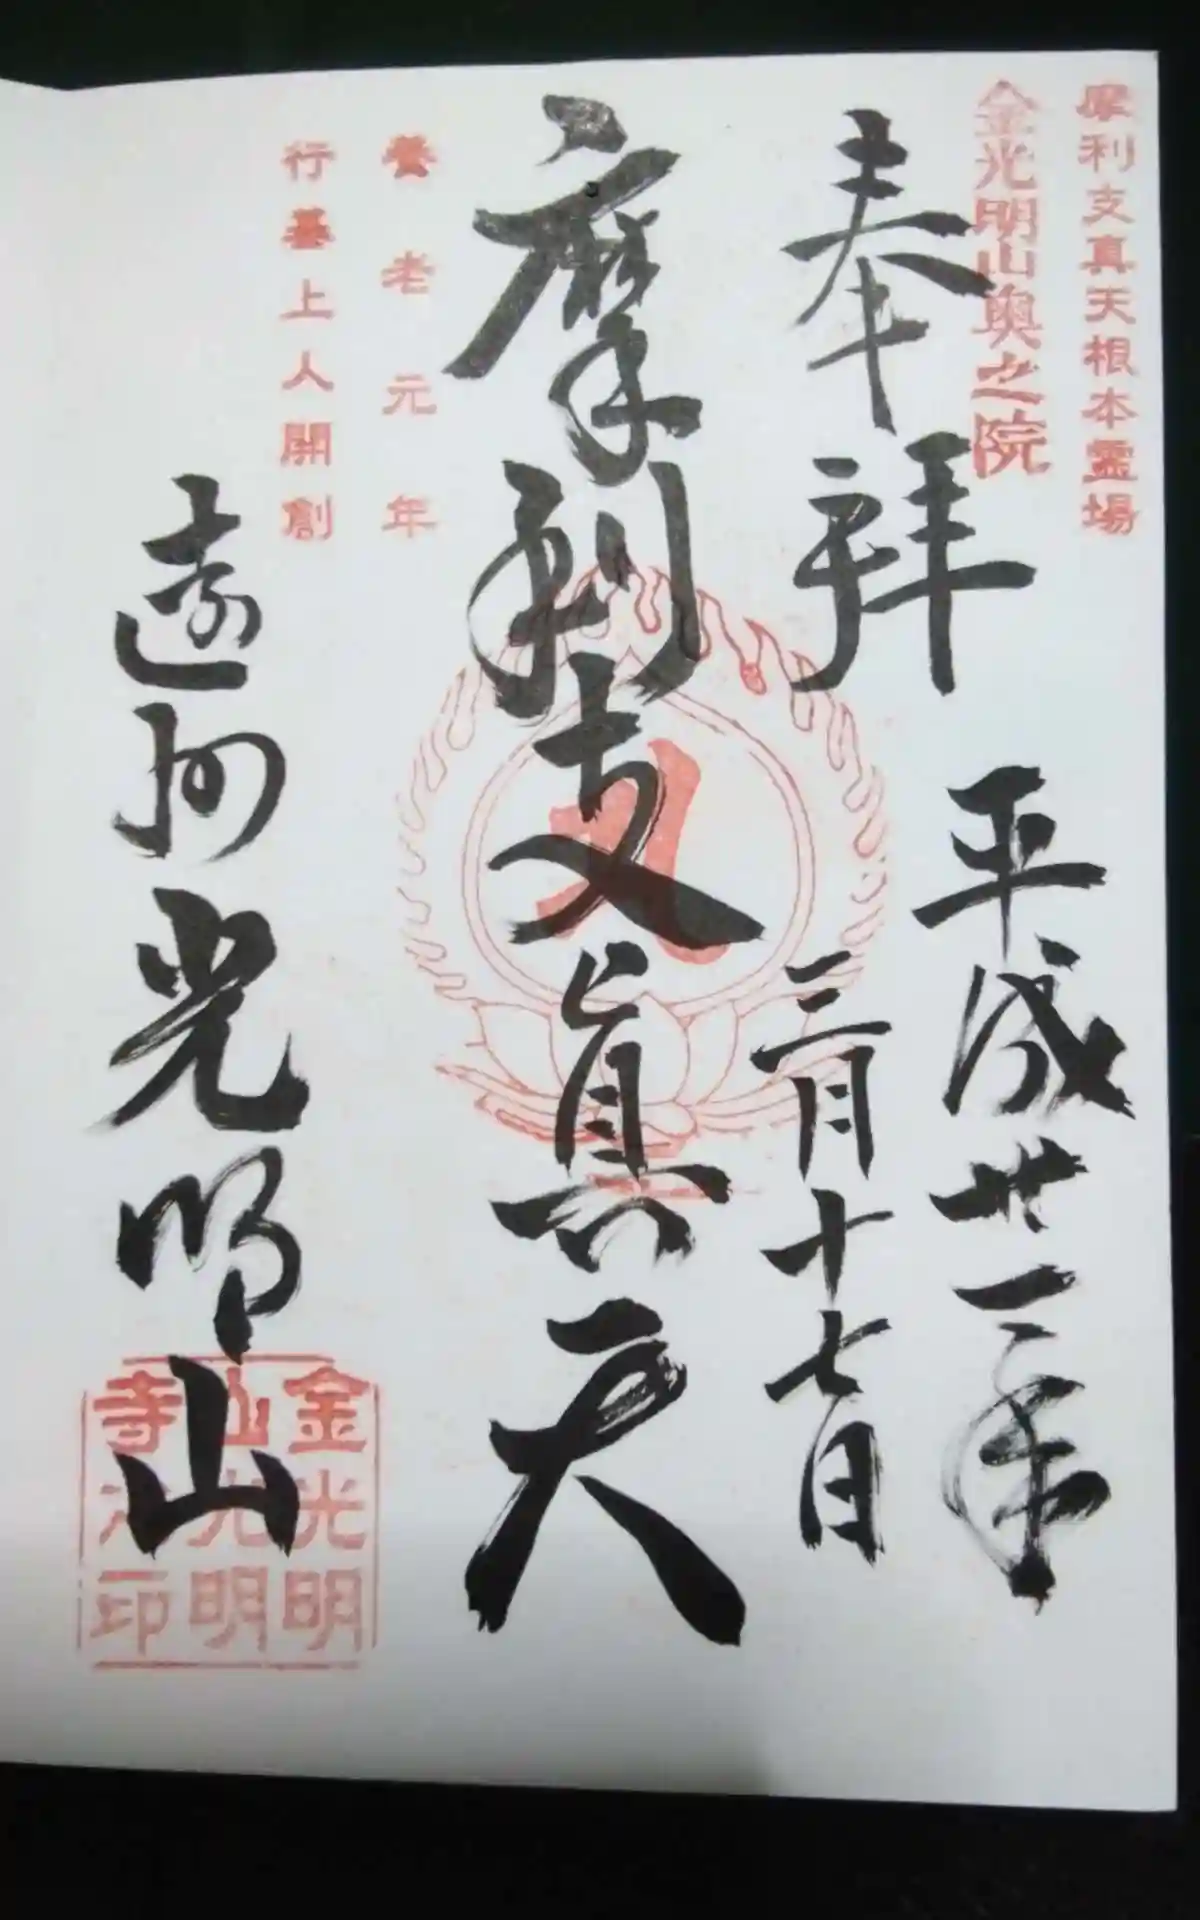 摩利支真天根本霊場
金光明山奥之院
奉拝
平成廿一年
三月十七日
摩利支眞天
養老元年
行基上人開創
遠州光明山
金光明
山光明
寺法印